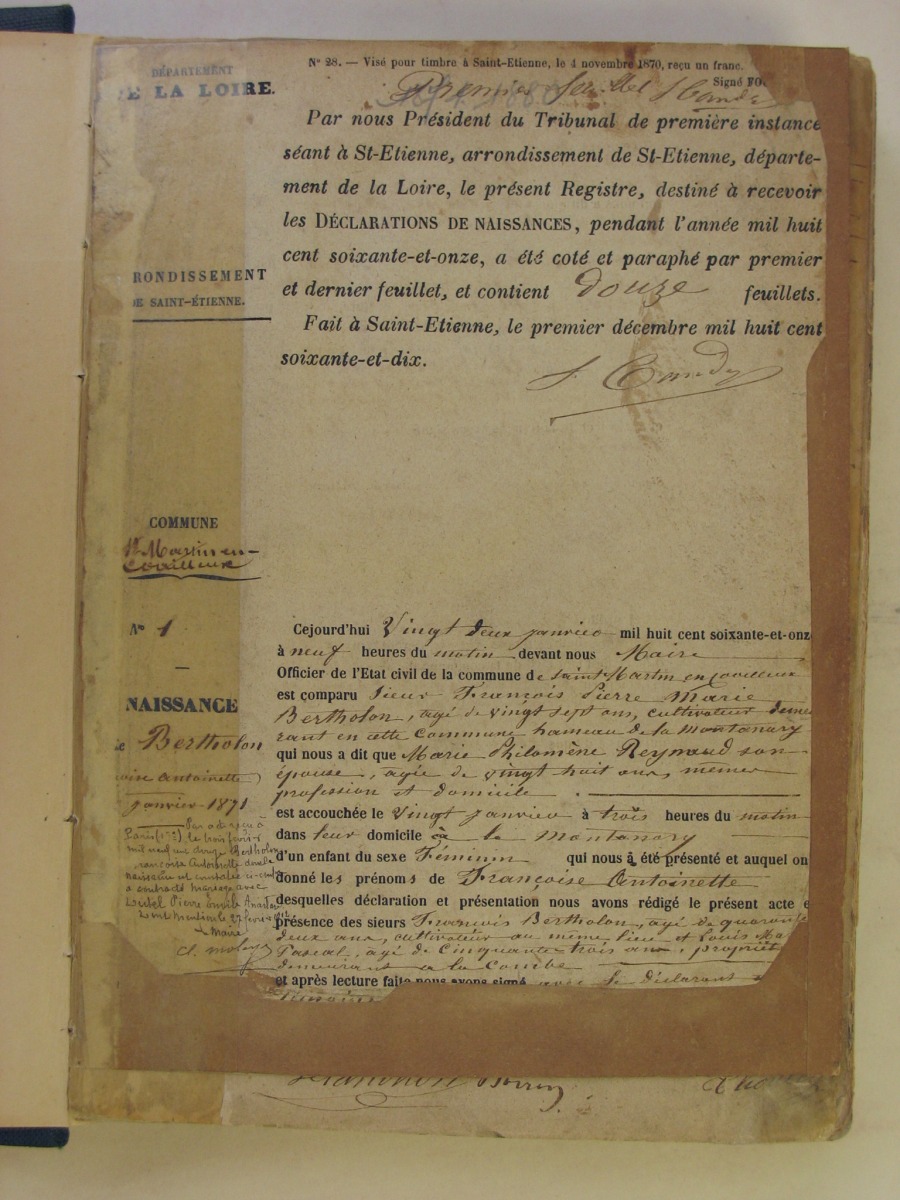 DÉPARTEMENT
DE LA LOIRE.
N° 28. — Visé pour timbre à Saint-Etienne, le 4 novembre 1870, reçu un franc.
Signé
Premier
Par nous Président du Tribunal de première instance
séant à St-Etienne, arrondissement de St-Etienne, départe-
ment de la Loire, le présent Registre, destiné à recevoir
les DÉCLARATIONS DE NAISSANCES, pendant l'année mil huit
cent soixante-et-onze, a été coté et paraphé par premier
et dernier feuillet, et contient douze feuillets.
Fait à Saint-Etienne, le premier décembre mil huit cent
soixante-et-dix.
RONDISSEMENT
DE SAINT-ÉTIENNE.
COMMUNE
St Martin en-
Coailleux
N° 1
NAISSANCE
de Bertholon
oise Antoinette
janvier 1871
Par acte reçu à
Paris le trois
mil neuf cent douze Bertholon
rançoise Antoinette dont la
naissance est constatée ci-contre
a contracté mariage avec
Pierre
Le Maire
Cejourd'hui Vingt deux janvier mil huit cent soixante-et-onz
à neuf heures du matin devant nous Maire
Officier de l'Etat civil de la commune de Saint Martin en Coailleux
est comparu Sieur François Pierre Marie
Bertholon, agé de vingt sept ans, cultivateur demeu
rant en cette commune hameau de la Montanary
qui nous a dit que Marie Philomène Reynaud son
épouse, agée de vingt huit ans, memes
profession et domicile.
est accouchée le Vingt janvier à trois heures du matin
dans leur domicile à la Montanary
d'un enfant du sexe Féminin qui nous a été présenté et auquel on
donné les prénoms de Françoise Antoinette
desquelles déclaration et présentation nous avons rédigé le présent acte e
présence des sieurs François Bertholon, agé de quarante
deux ans, cultivateur au même lieu et Louis Marie
Pascal, agé de Cinquante trois ans, propriét
demeurant a la Combe
et après lecture faite nous avons signé avec le déclarant
témoins